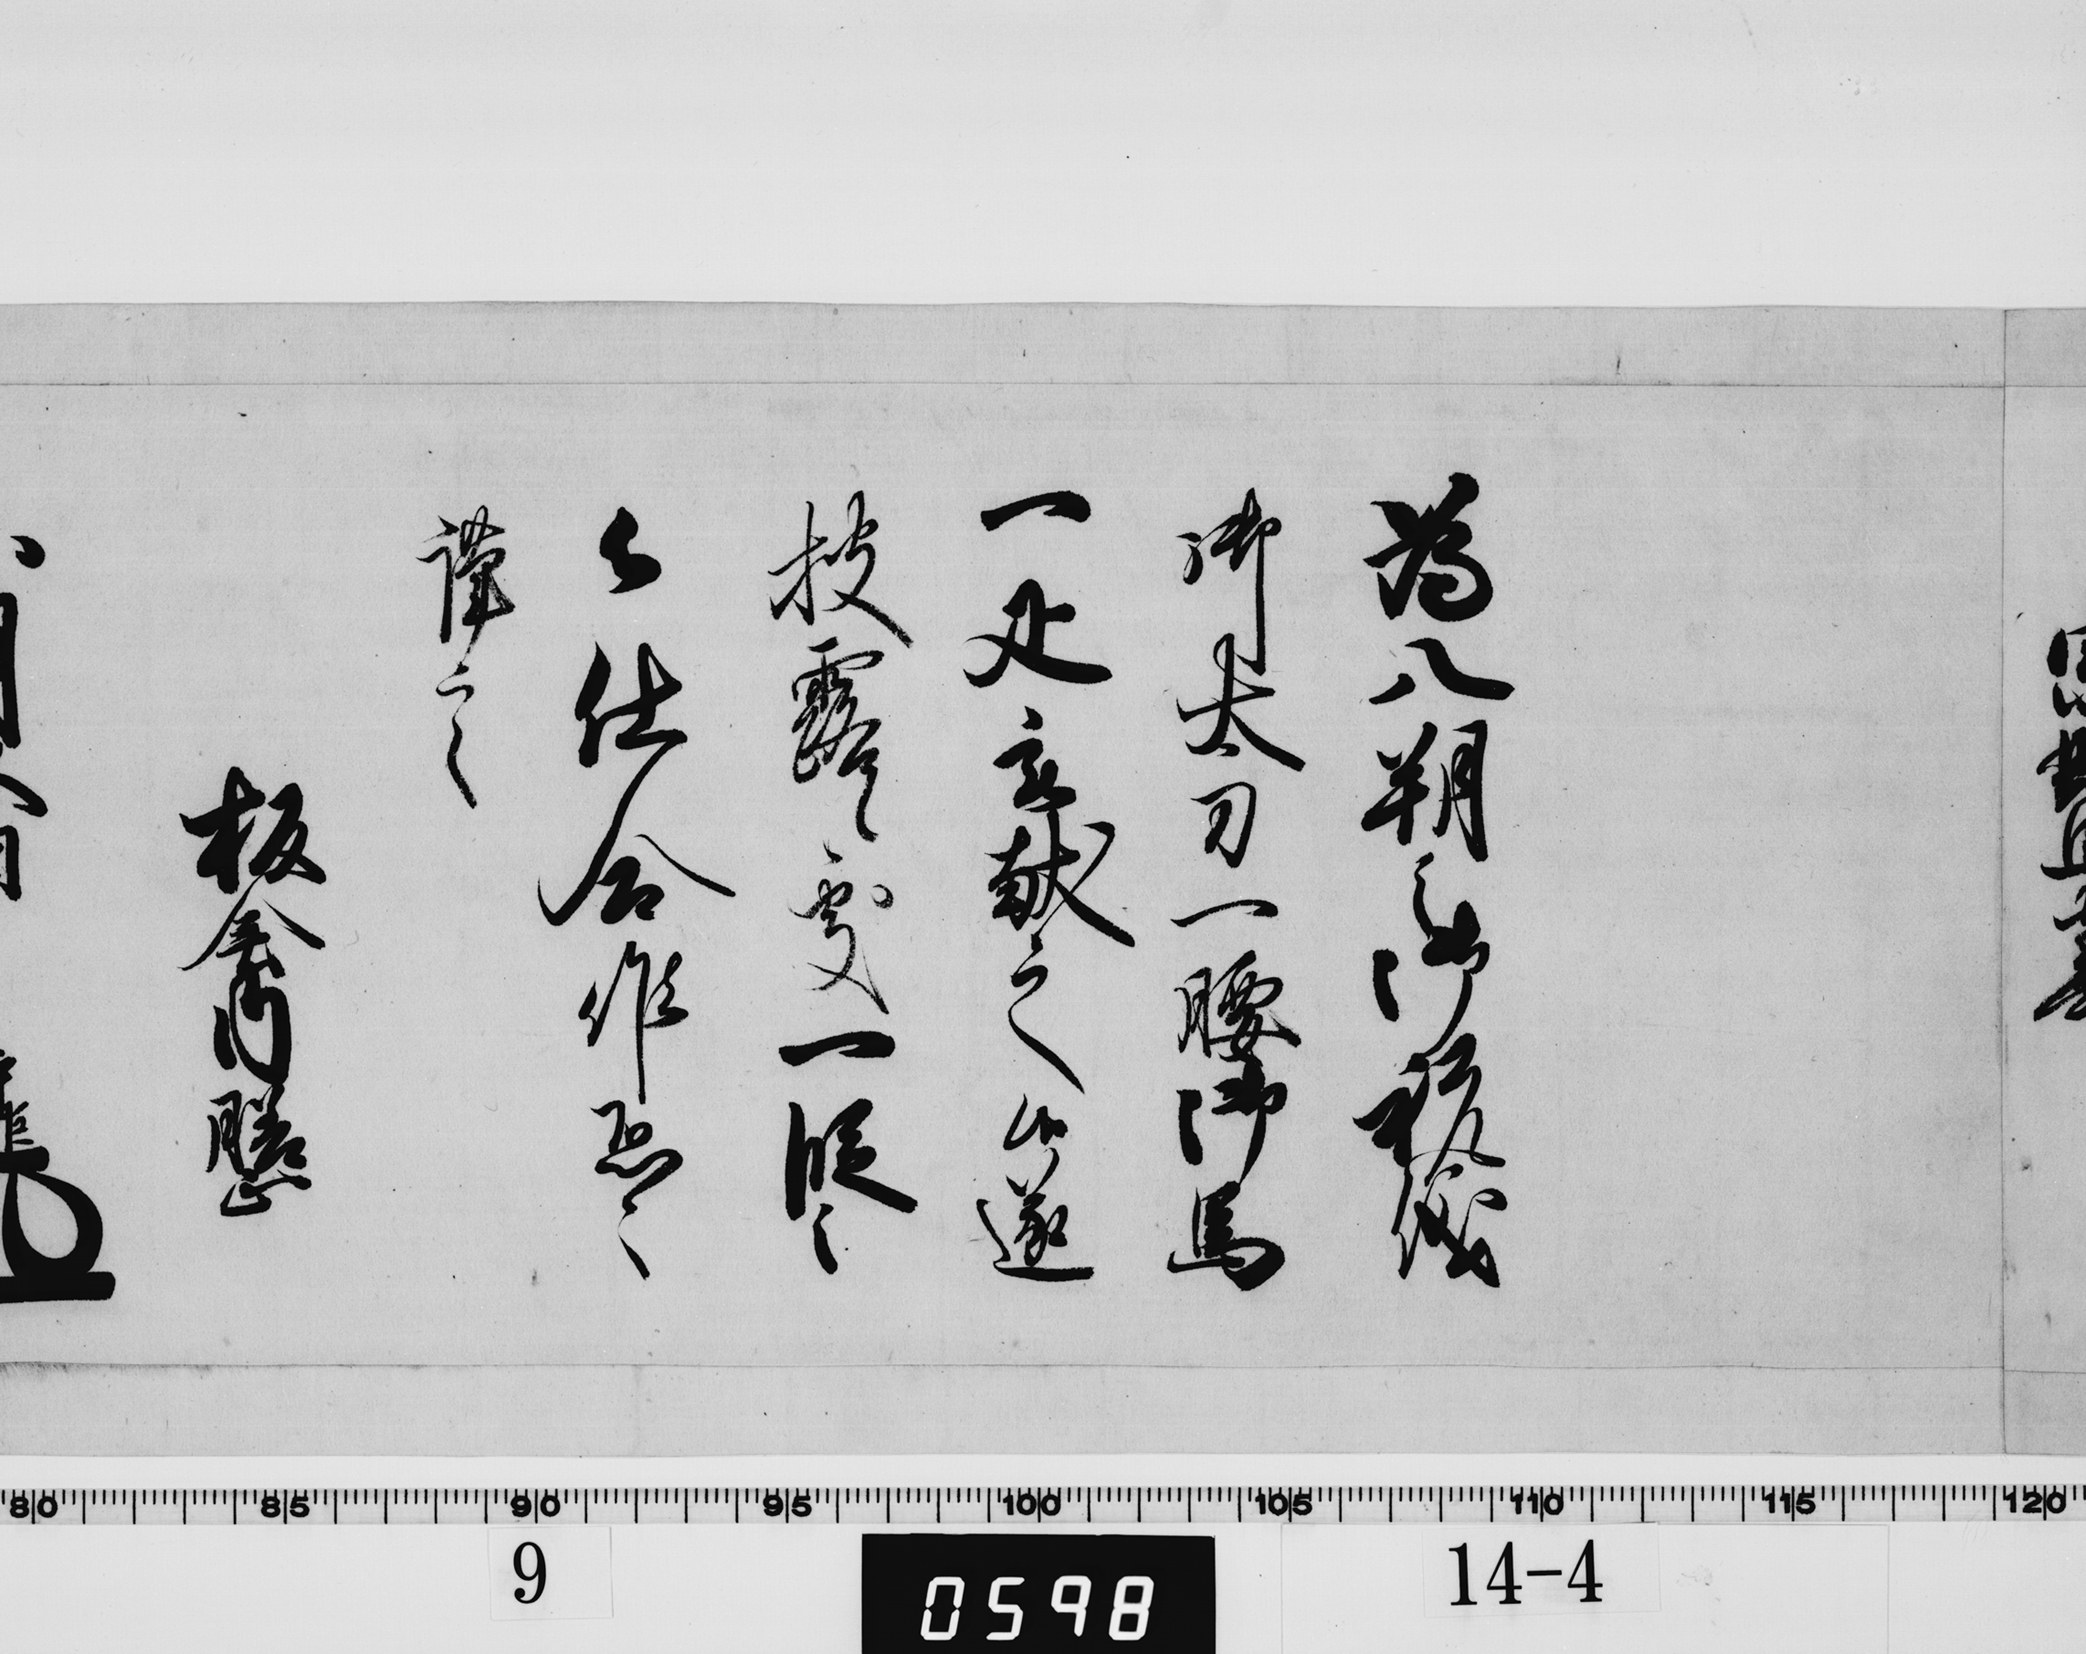 為八朔之御祝儀
御太刀一腰御馬
一疋献之候遂
披露候處一段之
仕合候恐々
謹言
板倉内膳正
0598
9
14-4
80 85 90 95 100 105 110 115 120